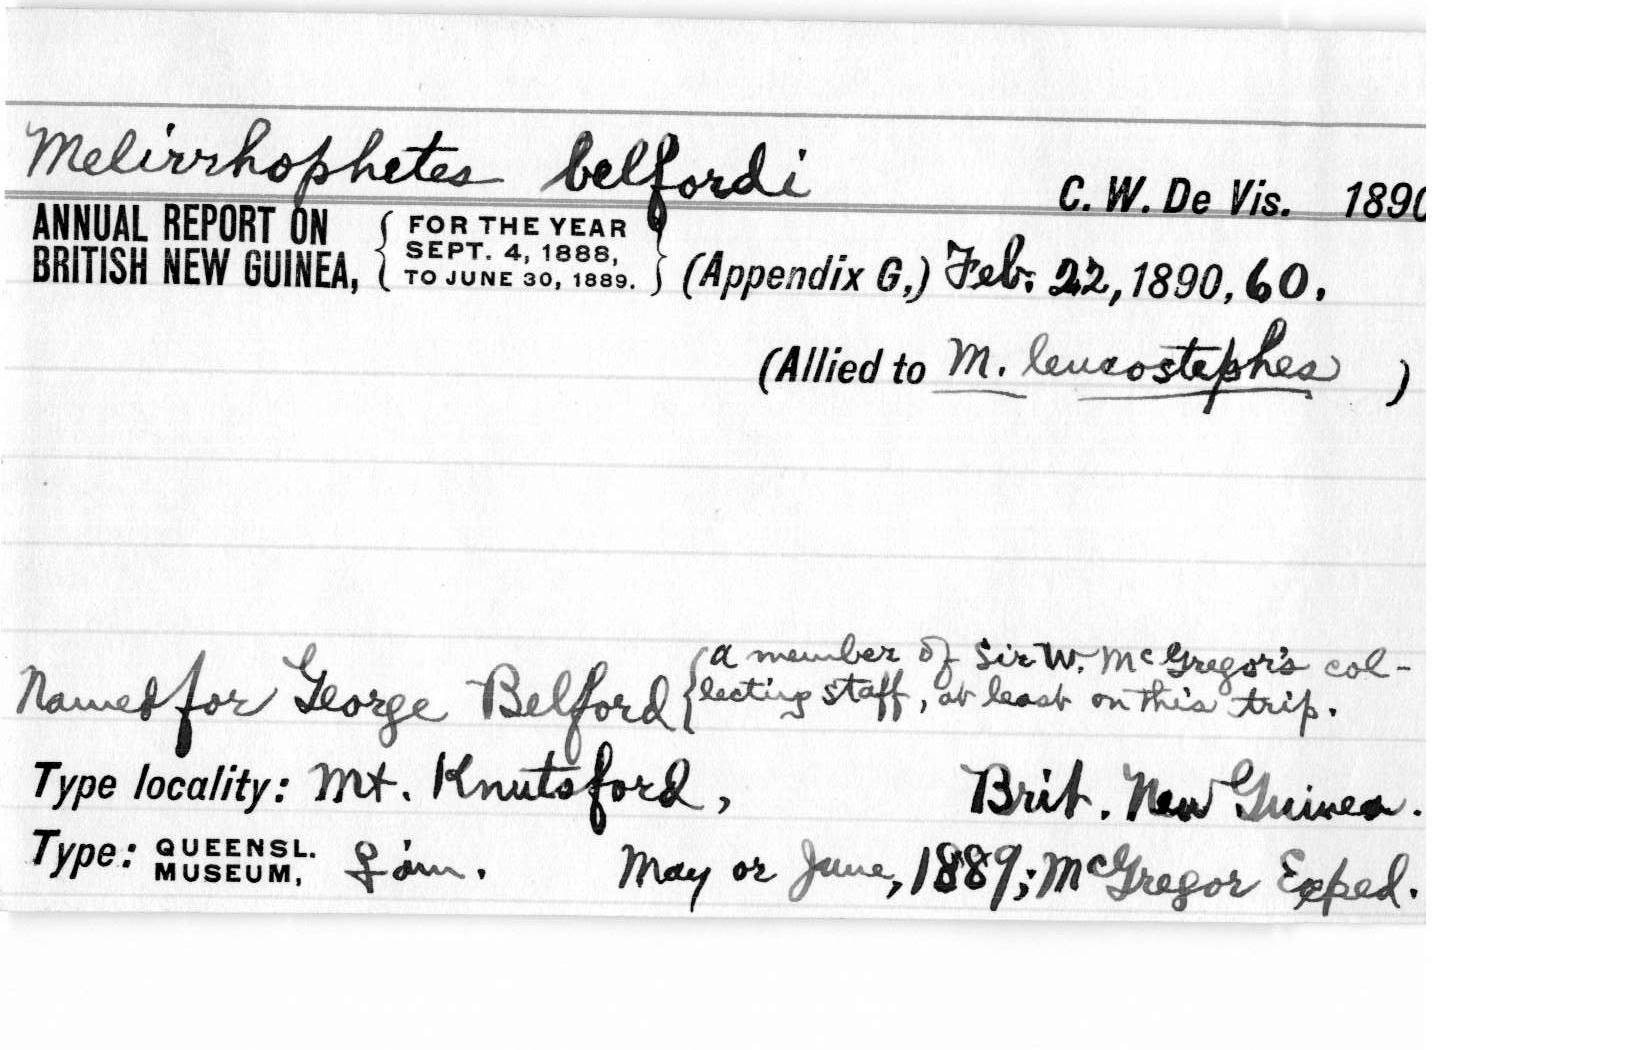 Melirrhophetes belfordi C. W. De Vis. 1890
ANNUAL REPORT ON BRITISH NEW GUINEA, { FOR THE YEAR SEPT. 4, 1888, TO JUNE 30, 1889. } (Appendix G,) Feb. 22, 1890, 60.
(Allied to M. leucostephes )
Named for George Belford { a member of Sir W. McGregor's col-
lecting staff, at least on this trip.
Type locality: Mt. Knutsford, Brit. New Guinea.
Type: QUEENSL. MUSEUM, May or June, 1889; McGregor Exped.